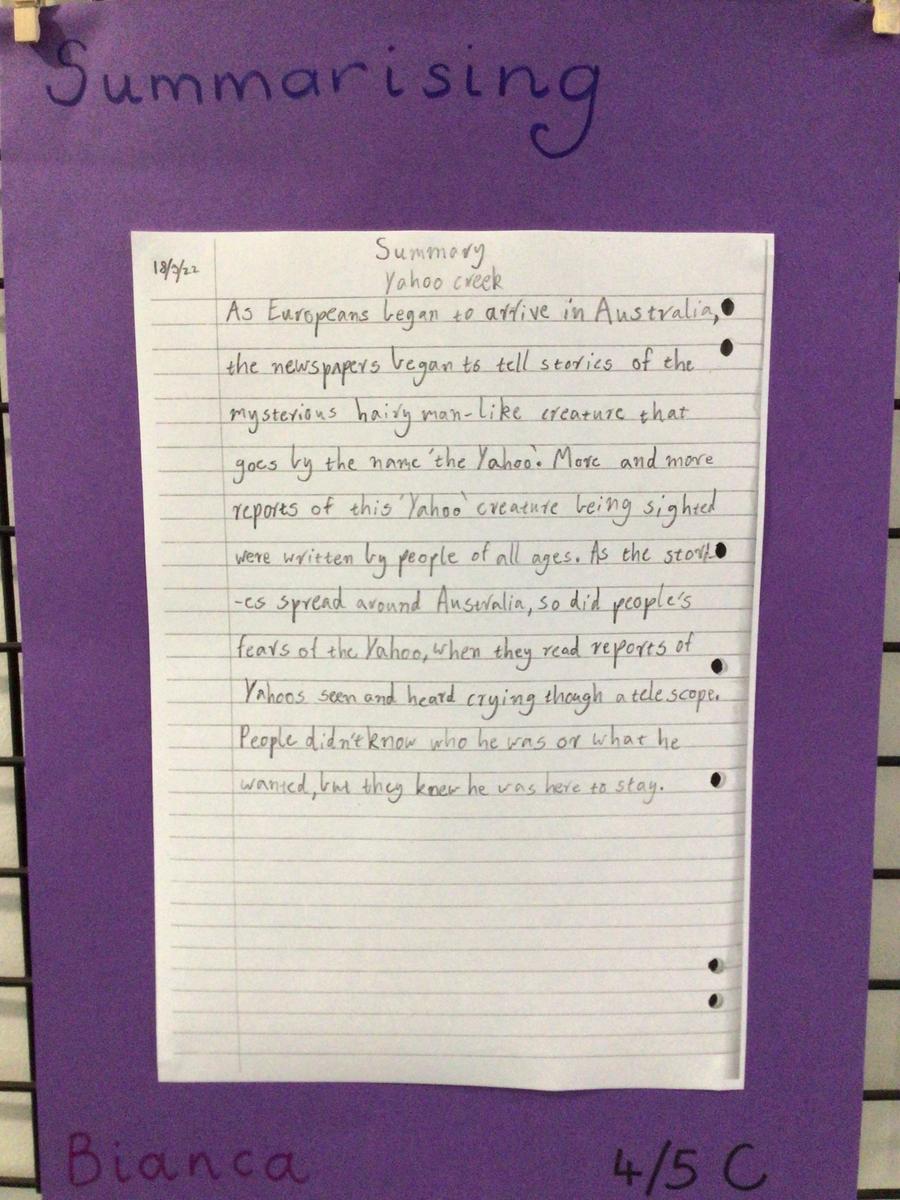 Summarising
Summary
18/3/22
Yahoo creek
As Europeans began to arrive in Australia,
the newspapers began to tell stories of the
mysterious hairy man-like creature that
goes by the name 'the Yahoo'. More and more
reports of this 'Yahoo' creature being sighted
were written by people of all ages. As the stori
-es spread around Australia, so did people's
fears of the Yahoo, when they read reports of
Yahoos seen and heard crying though a telescope.
People didn't know who he was or what he
wanted, but they knew he was here to stay.
Bianca
4/5 C